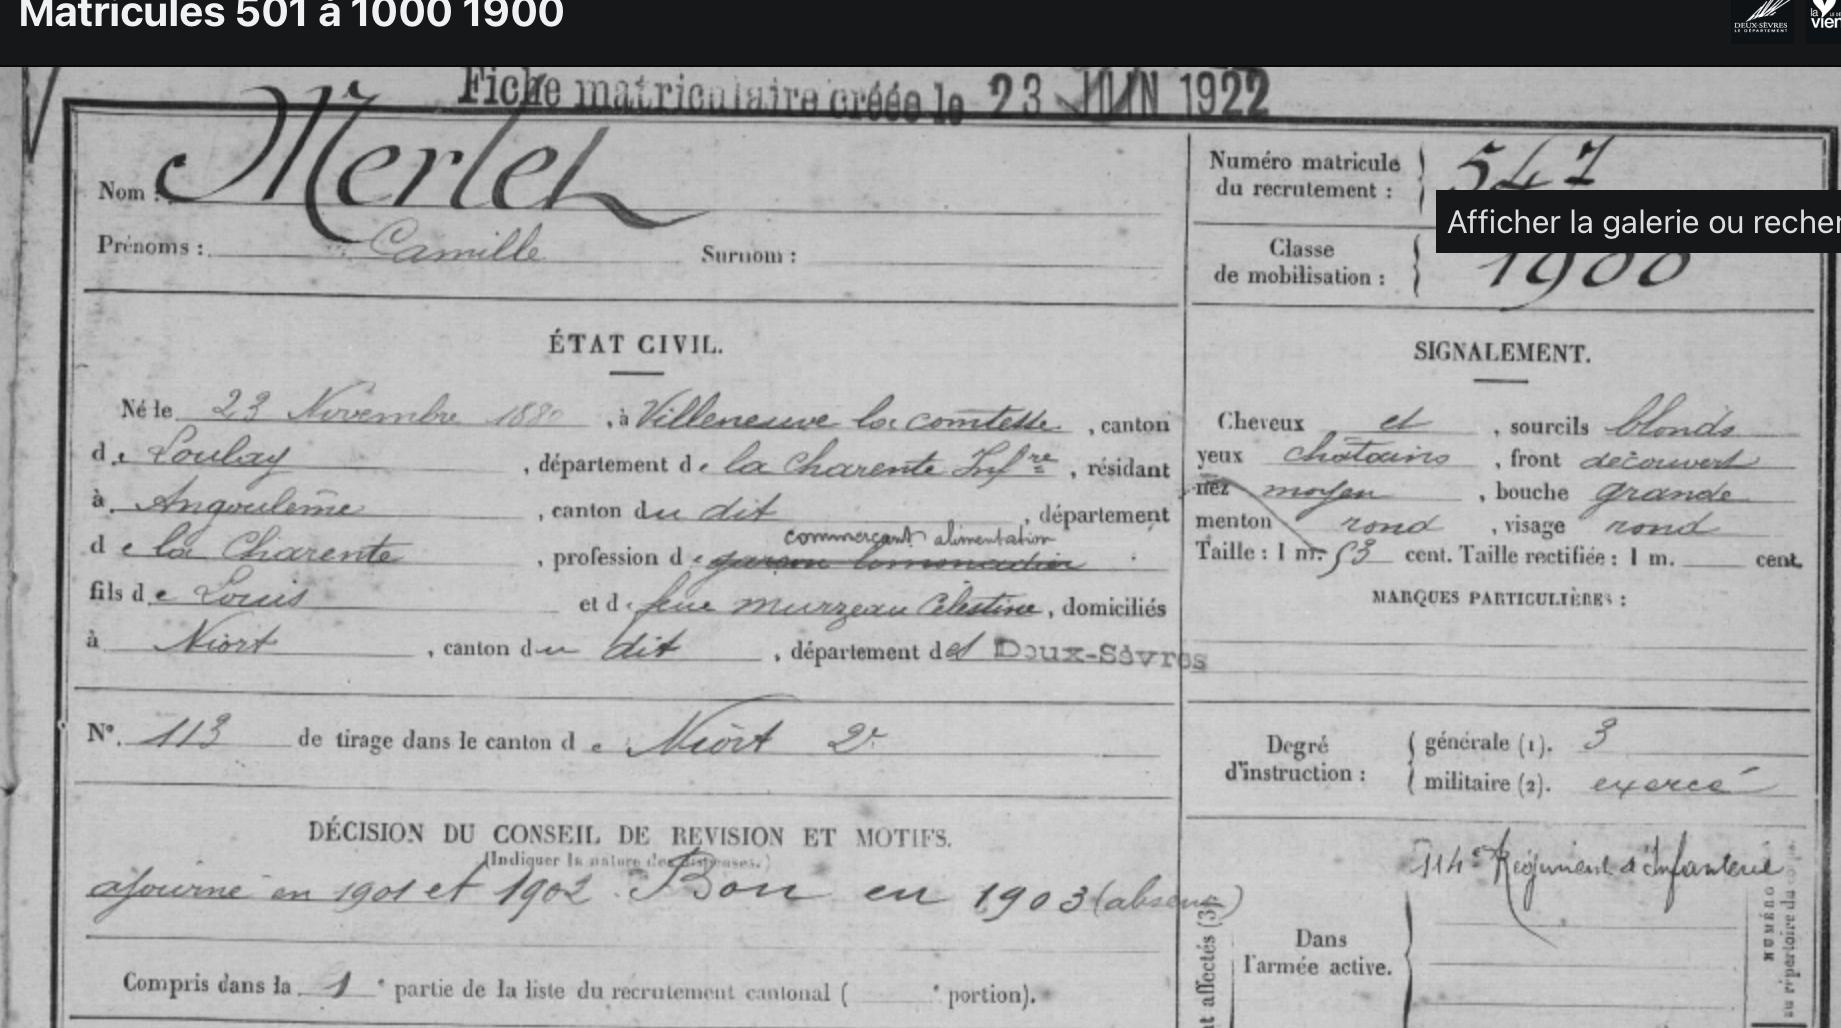 Matricules 501 à 1000 1900
DEUX-SÈVRES
LE DÉPARTEMENT
la
vien
Fiche matriculaire créée le 23 JUIN 1922
Nom : Merlet
Prénoms : Camille Surnom :
Numéro matricule
du recrutement : 547
Afficher la galerie ou recher
Classe
de mobilisation : 1900
ÉTAT CIVIL.
Né le 23 Novembre 1880, à Villeneuve la comtesse, canton
de Loulay, département de la Charente Infre, résidant
à Angoulême, canton du dit, département
commerçant alimentation
de la Charente, profession de garçon limonadier
fils de Louis et de feue Murzeau Célestine, domiciliés
à Niort, canton du dit, département des Deux-Sèvres
N° 113 de tirage dans le canton de Niort 2e
DÉCISION DU CONSEIL DE REVISION ET MOTIFS.
(Indiquer la nature des dispenses.)
ajourné en 1901 et 1902. Bon en 1903 (absent)
Compris dans la 1e partie de la liste du recrutement cantonal ( e portion).
SIGNALEMENT.
Cheveux et, sourcils blonds
yeux chatains, front découvert
nez moyen, bouche grande
menton rond, visage rond
Taille : 1 m. 53 cent. Taille rectifiée : 1 m. cent.
MARQUES PARTICULIÈRES :
Degré
d'instruction :
générale (1). 3
militaire (2). exercé
114e Régiment d'Infanterie
Dans
l'armée active.
t affectés (3)
NUMÉRO
au répertoire du corps